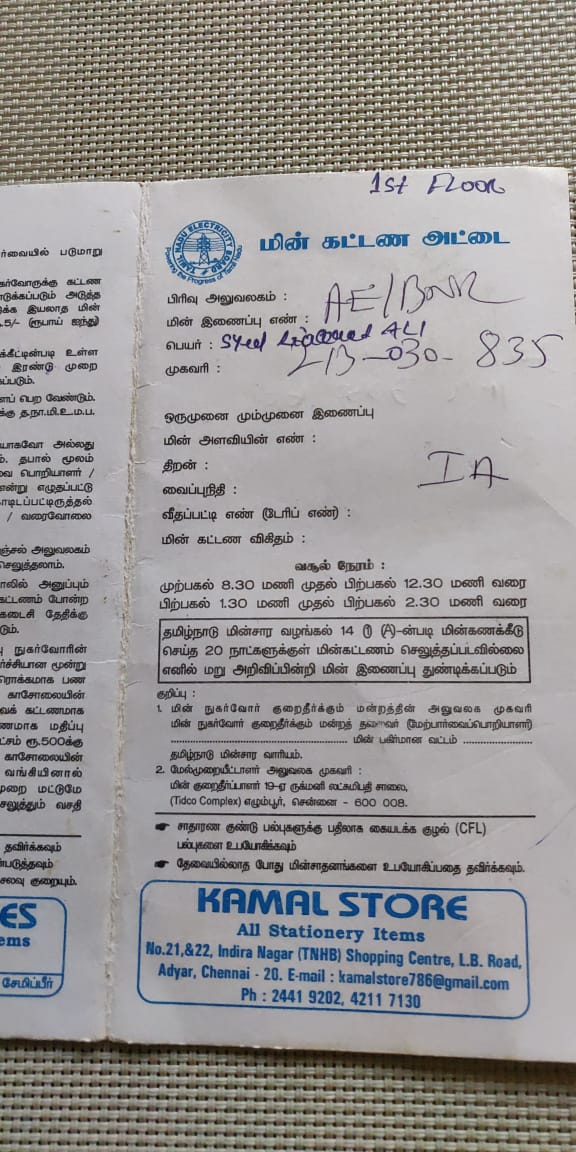 ர்வையில் படுமாறு
கர்வோருக்கு கட்டண
டுக்கப்படும் அடுத்த
க்க இயலாத மின்
.5/- (ரூபாய் ஐந்து)
க்கீட்டின்படி உள்ள
இரண்டு முறை
கப்படும்.
ளப் பெற வேண்டும்.
க்கு த.நா.மி.உ.ம.ப.
யாகவோ அல்லது
ம். தபால் மூலம்
வை பொறியாளர் /
என்று எழுதப்பட்டு
காடிடப்பட்டிருத்தல்
/ வரைவோலை
ஞ்சல் அலுவலகம்
செலுத்தலாம்.
ாலில் அனுப்பும்
கட்டணம் போன்ற
கடைசி தேதிக்கு
டும்.
பு நுகர்வோரின்
ர்ச்சியான மூன்று
ரொக்கமாக பண
காசோலையின்
வைக் கட்டணமாக
ணமாக மதிப்பு
ட்சம் ரூ.500க்கு
காசோலையின்
வங்கியினால்
முறை மட்டுமே
சலுத்தும் வசதி
தவிர்க்கவும்
ன்படுத்தவும்
சலவு குறையும்.
ES
ems
சேமிப்பீர்
1st FLOOR
TAMIL NADU ELECTRICITY BOARD
Powering the Progress of Tamil Nadu
மின் கட்டண அட்டை
பிரிவு அலுவலகம் : AE/
மின் இணைப்பு எண் :
பெயர் : Syed ALI
முகவரி : 213-030-835
ஒருமுனை மும்முனை இணைப்பு
மின் அளவியின் எண் :
திறன் : IA
வைப்புநிதி :
வீதப்பட்டி எண் (டேரிப் எண்) :
மின் கட்டண விகிதம் :
வசூல் நேரம் :
முற்பகல் 8.30 மணி முதல் பிற்பகல் 12.30 மணி வரை
பிற்பகல் 1.30 மணி முதல் பிற்பகல் 2.30 மணி வரை
தமிழ்நாடு மின்சார வழங்கல் 14 (A)-ன்படி மின்கணக்கீடு
செய்த 20 நாட்களுக்குள் மின்கட்டணம் செலுத்தப்படவில்லை
எனில் மறு அறிவிப்பின்றி மின் இணைப்பு துண்டிக்கப்படும்
குறிப்பு :
1. மின் நுகர்வோர் குறைதீர்க்கும் மன்றத்தின் அலுவலக முகவரி
மின் நுகர்வோர் குறைதீர்க்கும் மன்றத் தலைவர் (மேற்பார்வைப்பொறியாளர்)
.......................................... மின் பகிர்மான வட்டம் ....................
தமிழ்நாடு மின்சார வாரியம்.
2. மேல்முறையீட்டாளர் அலுவலக முகவரி :
மின் குறைதீர்ப்பாளர் 19-ஏ ருக்மனி லட்சுமிபதி சாலை,
(Tidco Complex) எழும்பூர், சென்னை - 600 008.
☛ சாதாரண குண்டு பல்புகளுக்கு பதிலாக கையடக்க குழல் (CFL)
பல்புகளை உபயோகிக்கவும்
☛ தேவையில்லாத போது மின்சாதனங்களை உபயோகிப்பதை தவிர்க்கவும்.
KAMAL STORE
All Stationery Items
No.21,&22, Indira Nagar (TNHB) Shopping Centre, L.B. Road,
Adyar, Chennai - 20. E-mail : kamalstore786@gmail.com
Ph : 2441 9202, 4211 7130